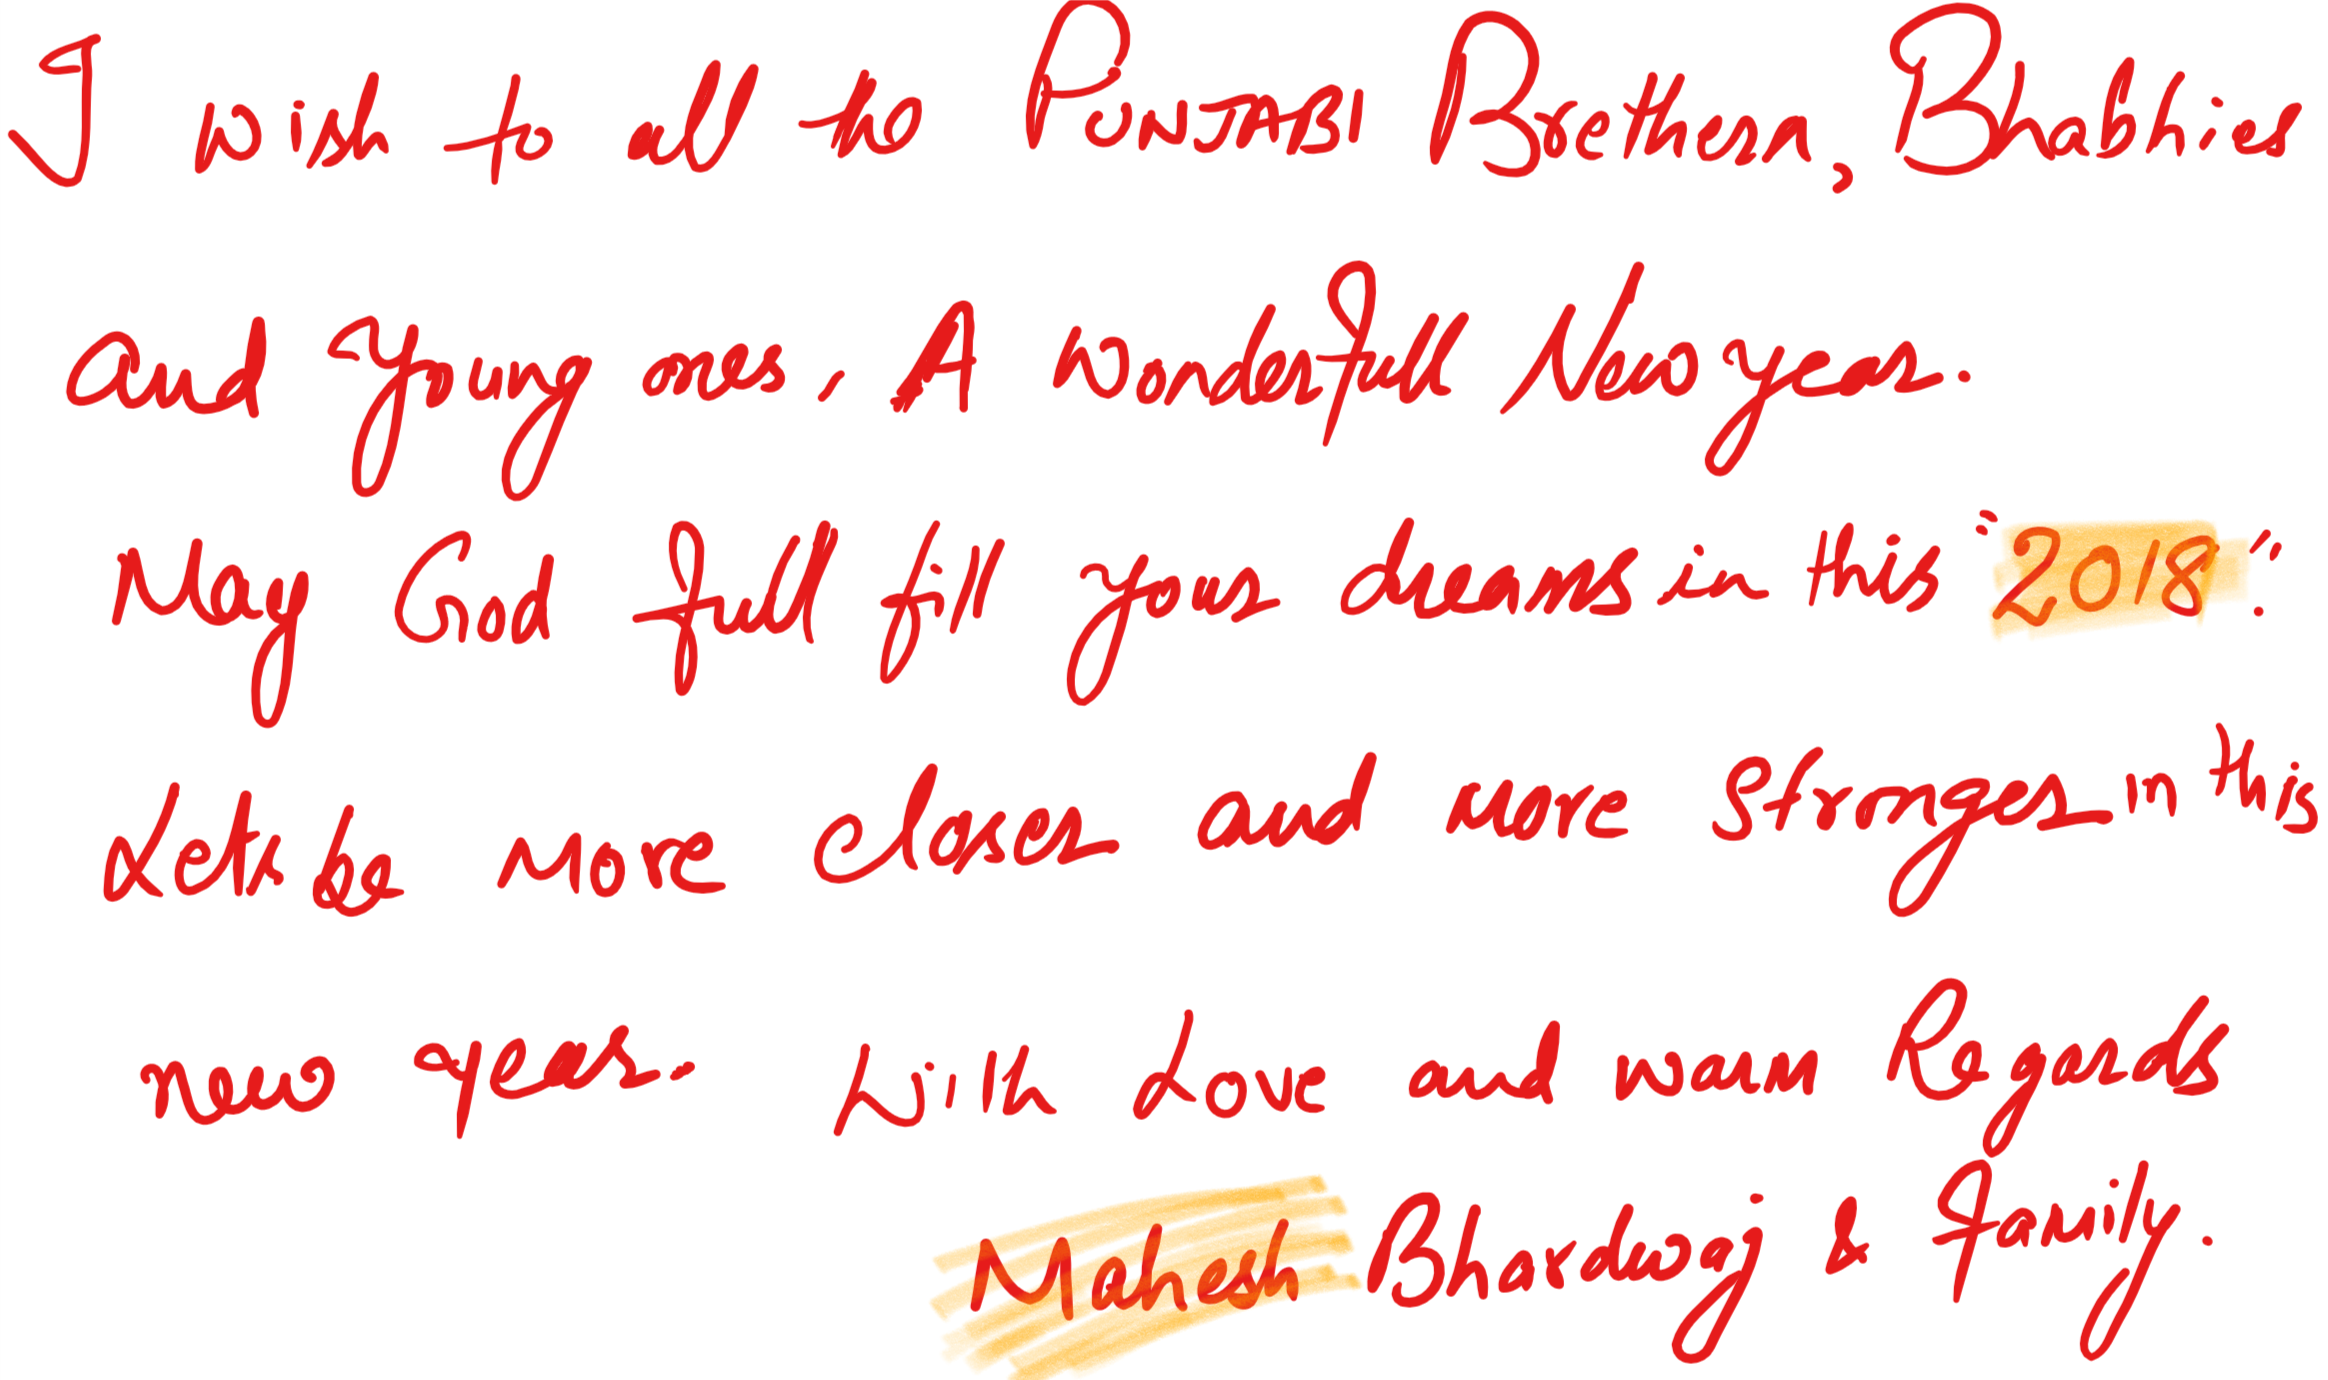 I wish to all the PUNJABI Brethern, Bhabhies
and Young ones, A wonderfull New year.
May God full fill your dreams in this "2018".
Lets be more closer and more Stronger in this
new year. With Love and warm Regards
Mahesh Bhardwaj & Family.